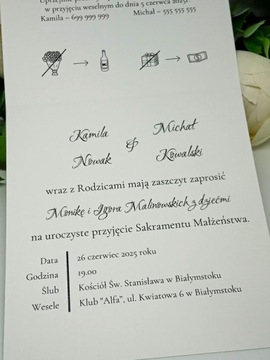 w przyjęciu weselnym do dnia 5 czerwca 2025r.
Kamila – 699 999 999 Michał – 555 555 555
Kamila Nowak & Michał Kowalski
wraz z Rodzicami mają zaszczyt zaprosić
Monikę i Igora Malinowskich z dziećmi
na uroczyste przyjęcie Sakramentu Małżeństwa.
Data 26 czerwiec 2025 roku
Godzina 19.00
Ślub Kościół Św. Stanisława w Białymstoku
Wesele Klub "Alfa", ul. Kwiatowa 6 w Białymstoku